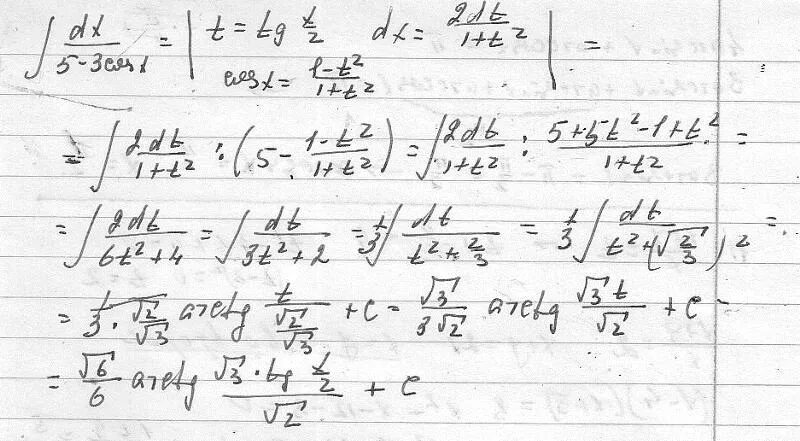 ∫ dx/(5-3cosx) = | t = tg x/2   dx = 2dt/(1+t²) | =
cosx = (1-t²)/(1+t²)
= ∫ 2dt/(1+t²) : (5 - (1-t²)/(1+t²)) = ∫ 2dt/(1+t²) : (5+5t²-1+t²)/(1+t²) =
= ∫ 2dt/(6t²+4) = ∫ dt/(3t²+2) = 1/3 ∫ dt/(t²+2/3) = 1/3 ∫ dt/(t²+(√2/3)²) =
= 1/(3·√2/√3) arctg t/(√2/√3) + C = √3/(3√2) arctg √3t/√2 + C =
= √6/6 arctg (√3·tg x/2)/√2 + C